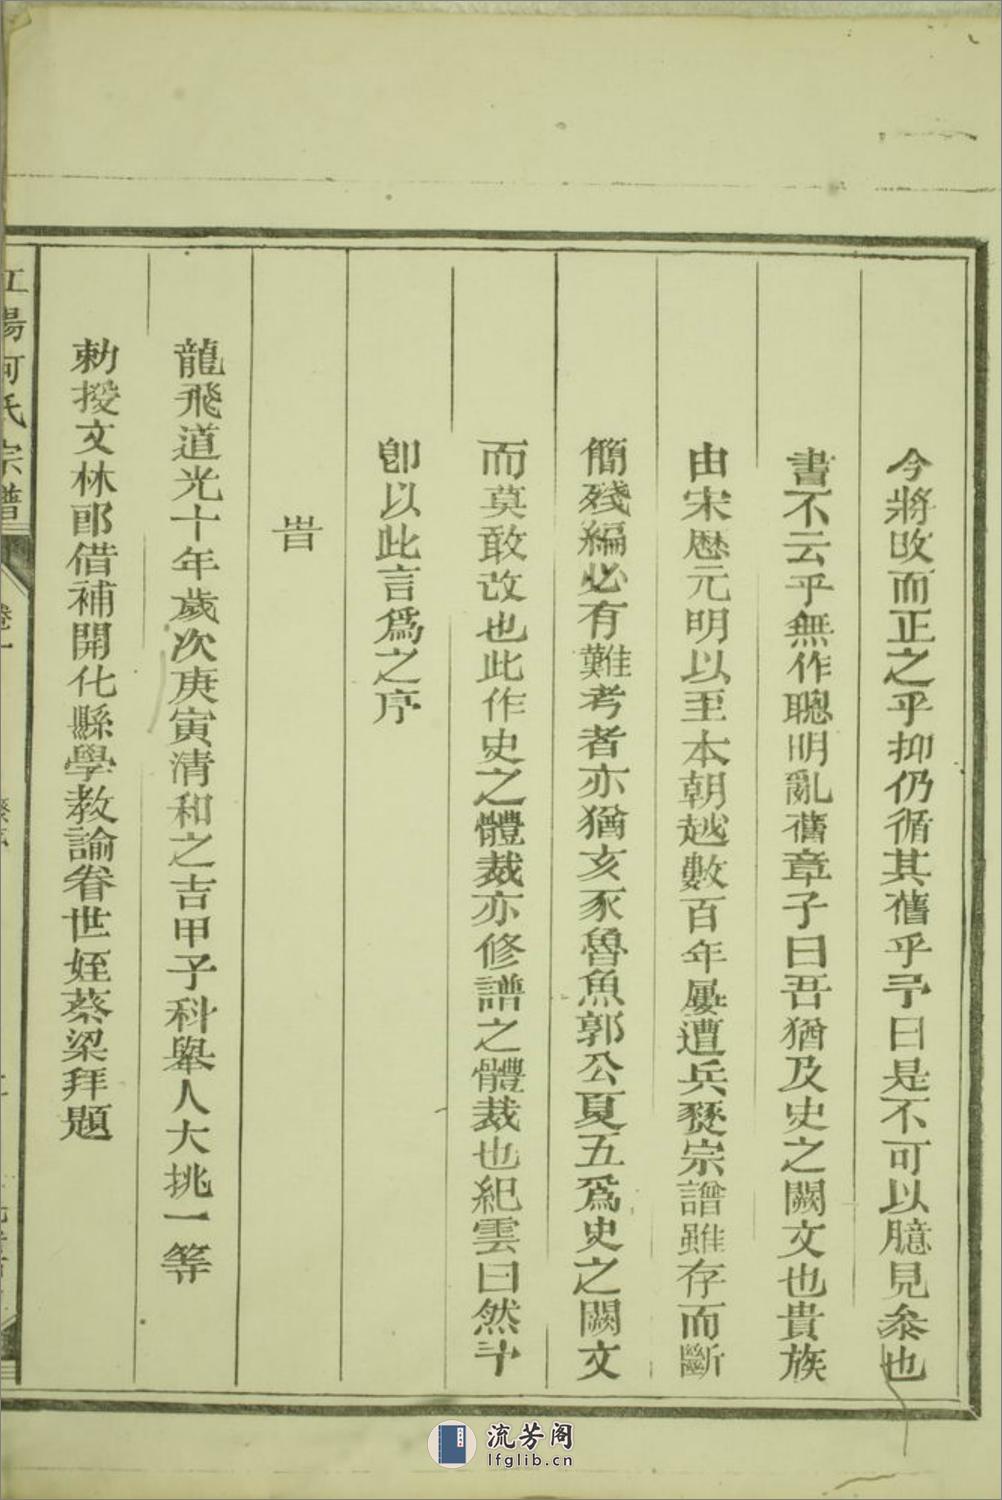 今將攺而正之乎抑仍循其舊乎予曰是不可以臆見叅也
書不云乎無作聰明亂舊章子曰吾猶及史之闕文也貴族
由宋厯元明以至本朝越數百年屢遭兵燹宗譜雖存而斷
簡殘編必有難考者亦猶亥豕魯魚郭公夏五爲史之闕文
而莫敢改也此作史之體裁亦修譜之體裁也紀雲曰然
卽以此言爲之序
旹
龍飛道光十年歲次庚寅清和之吉甲子科舉人大挑一等
勅授文林郎借補開化縣學教諭眷世姪蔡梁拜題
江陽何氏宗譜
卷一
流芳阁
lfglib.cn